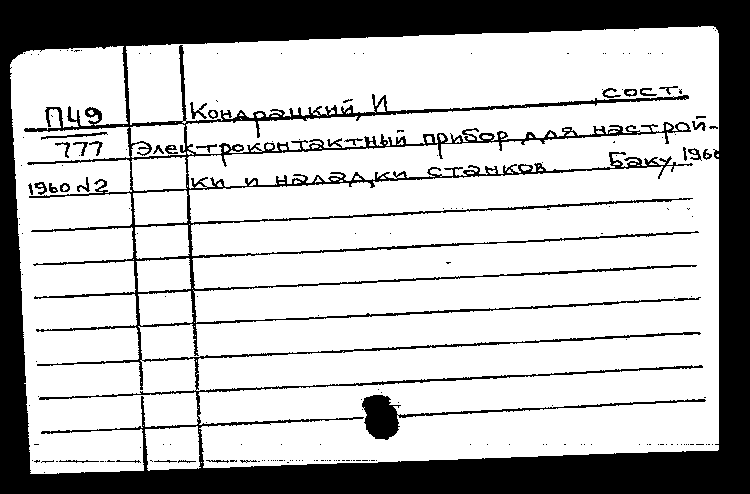 П49 Кондрацкий, И , сост.
777 Электроконтактный прибор для настрой-
1960 №2 ки и наладки станков. Баку, 1960